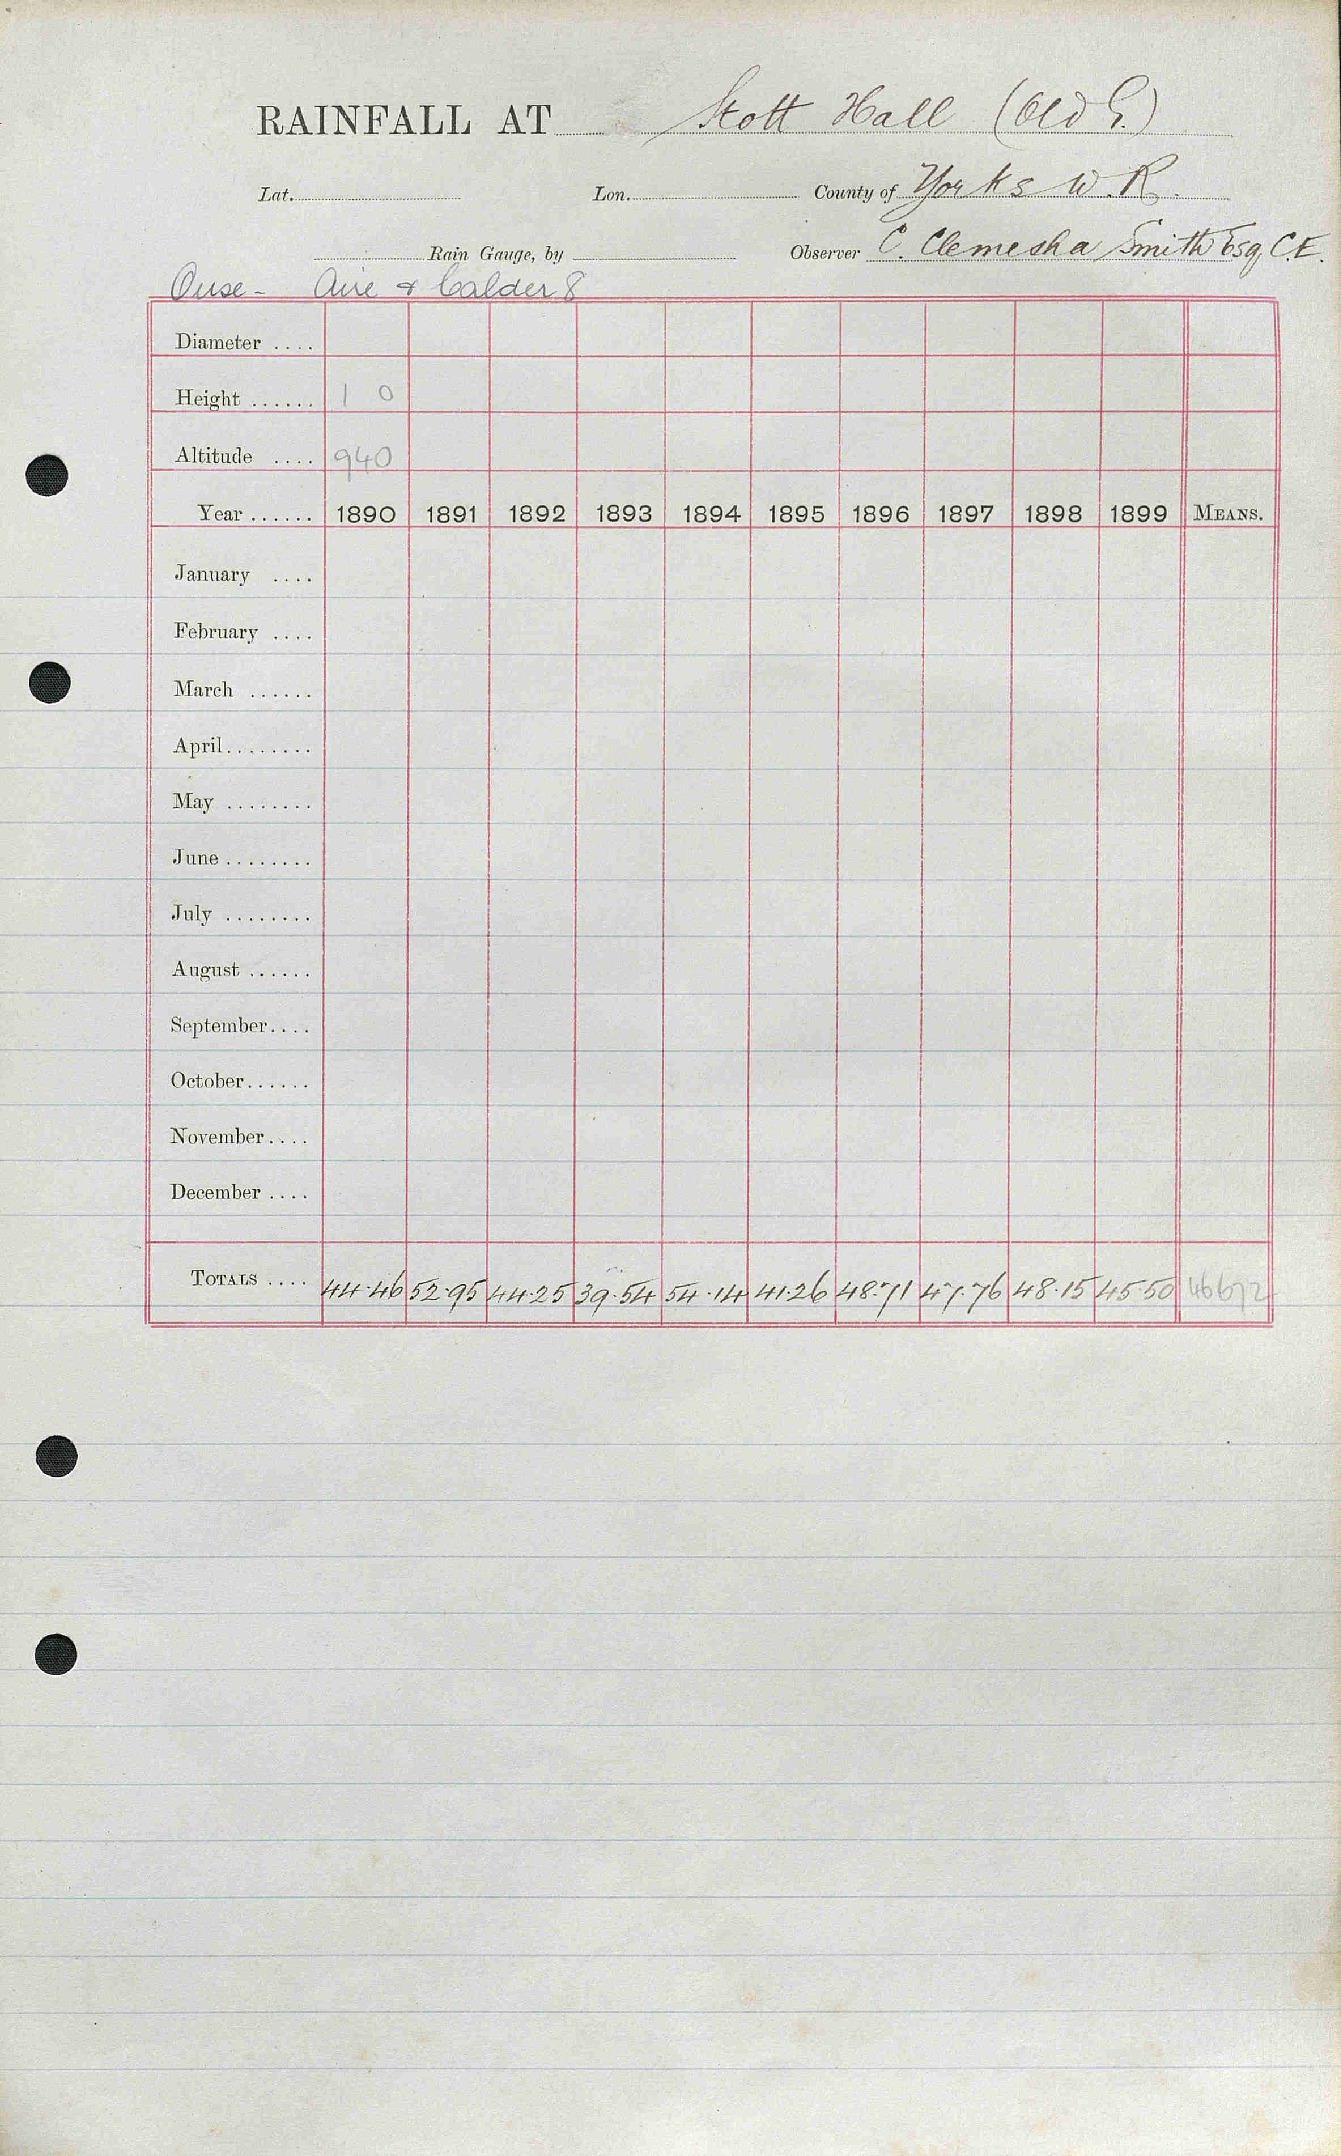 RAINFALL AT Stott Hall (Old G.)
Lat. Lon. County of Yorks W.R.
Rain Gauge, by Observer C. Clemesha Smith Esq, C.E.
Ouse - Aire & Calder 8
Diameter ....
Height ...... 1 0
Altitude .... 940
Year ...... 1890 1891 1892 1893 1894 1895 1896 1897 1898 1899 MEANS.
January ....
February ....
March ......
April ........
May ........
June ........
July ........
August ......
September ....
October ......
November ....
December ....
TOTALS .... 44.46 52.95 44.25 39.54 54.14 41.26 48.71 47.76 48.15 45.50 46672